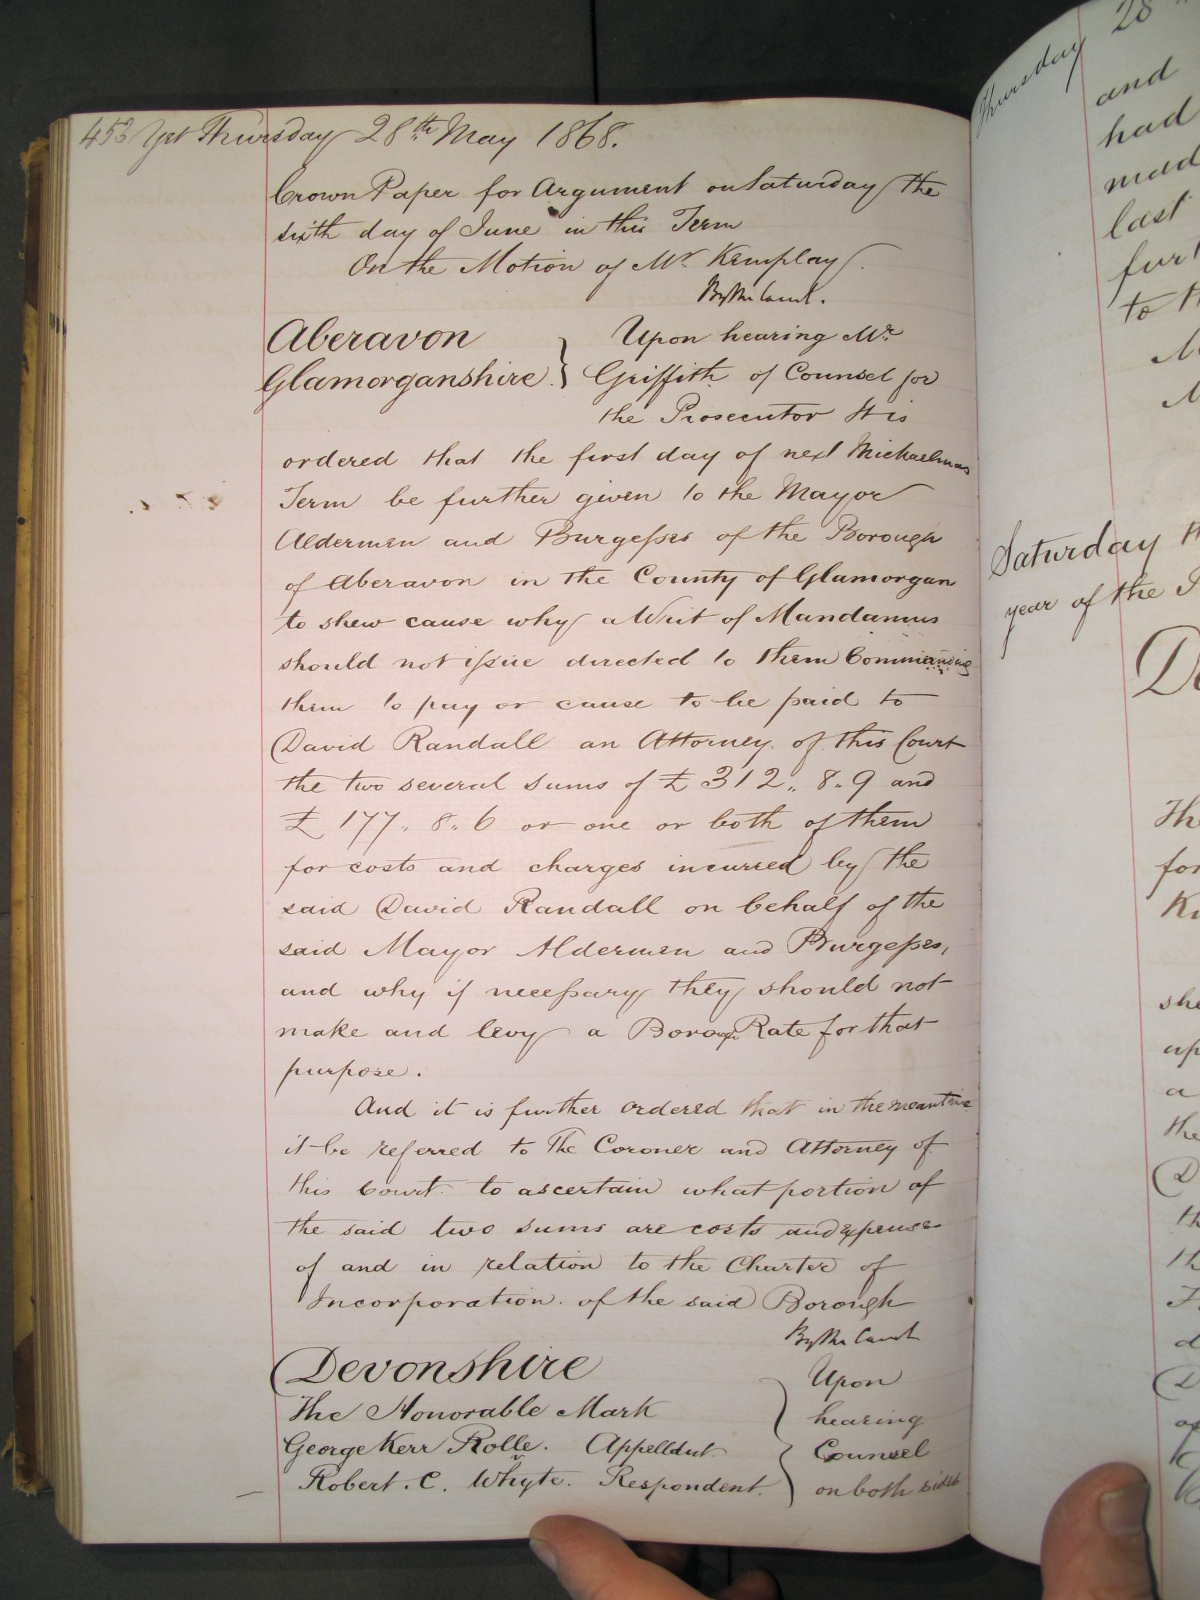 453 Yet Thursday 28th May 1868.
Crown Paper for Argument on Saturday the
sixth day of June in this Term
On the Motion of Mr Kemplay.
By the Court.
Aberavon
Glamorganshire }
Upon hearing Mr
Griffith of Counsel for
the Prosecutor It is
ordered that the first day of next Michaelmas
Term be further given to the Mayor
Aldermen and Burgesses of the Borough
of Aberavon in the County of Glamorgan
to shew cause why a Writ of Mandamus
should not issue directed to them Commanding
them to pay or cause to be paid to
David Randall an Attorney of this Court
the two several sums of £312.. 8.. 9 and
£177.. 8.. 6 or one or both of them
for costs and charges incurred by the
said David Randall on behalf of the
said Mayor Aldermen and Burgesses,
and why if necessary they should not
make and levy a Boro' Rate for that
purpose.
And it is further ordered that in the meantime
it be referred to The Coroner and Attorney of
this Court to ascertain what portion of
the said two sums are costs and expenses
of and in relation to the Charter of
Incorporation of the said Borough
By the Court
Devonshire
The Honorable Mark
George Kerr Rolle. Appellant
Robert. C. Whyte. Respondent. }
Upon
hearing
Counsel
on both sides
Thursday 28
and
had
mad
last
furt
to th
Saturday th
year of the
De
The
for
she
up
a
the